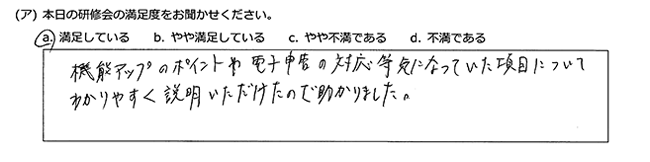 (ア) 本日の研修会の満足度をお聞かせください。
a. 満足している　b. やや満足している　c. やや不満である　d. 不満である
機能アップのポイントや電子申告の対応等気になっていた項目について
わかりやすく説明いただけたので助かりました。